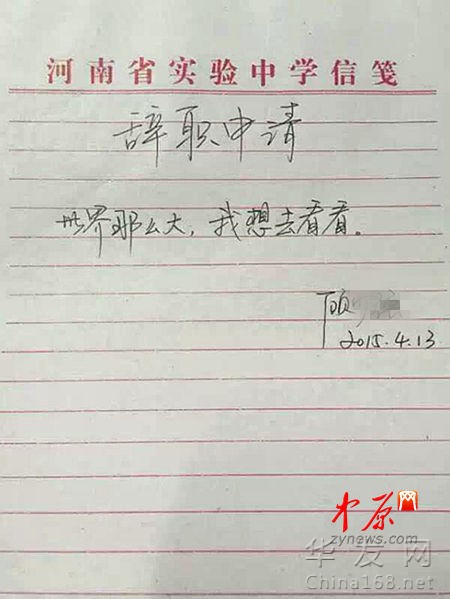 河南省实验中学信笺
辞职申请
世界那么大，我想去看看。
顾
2015.4.13
中原网
zynews.com
华发网
China168.net